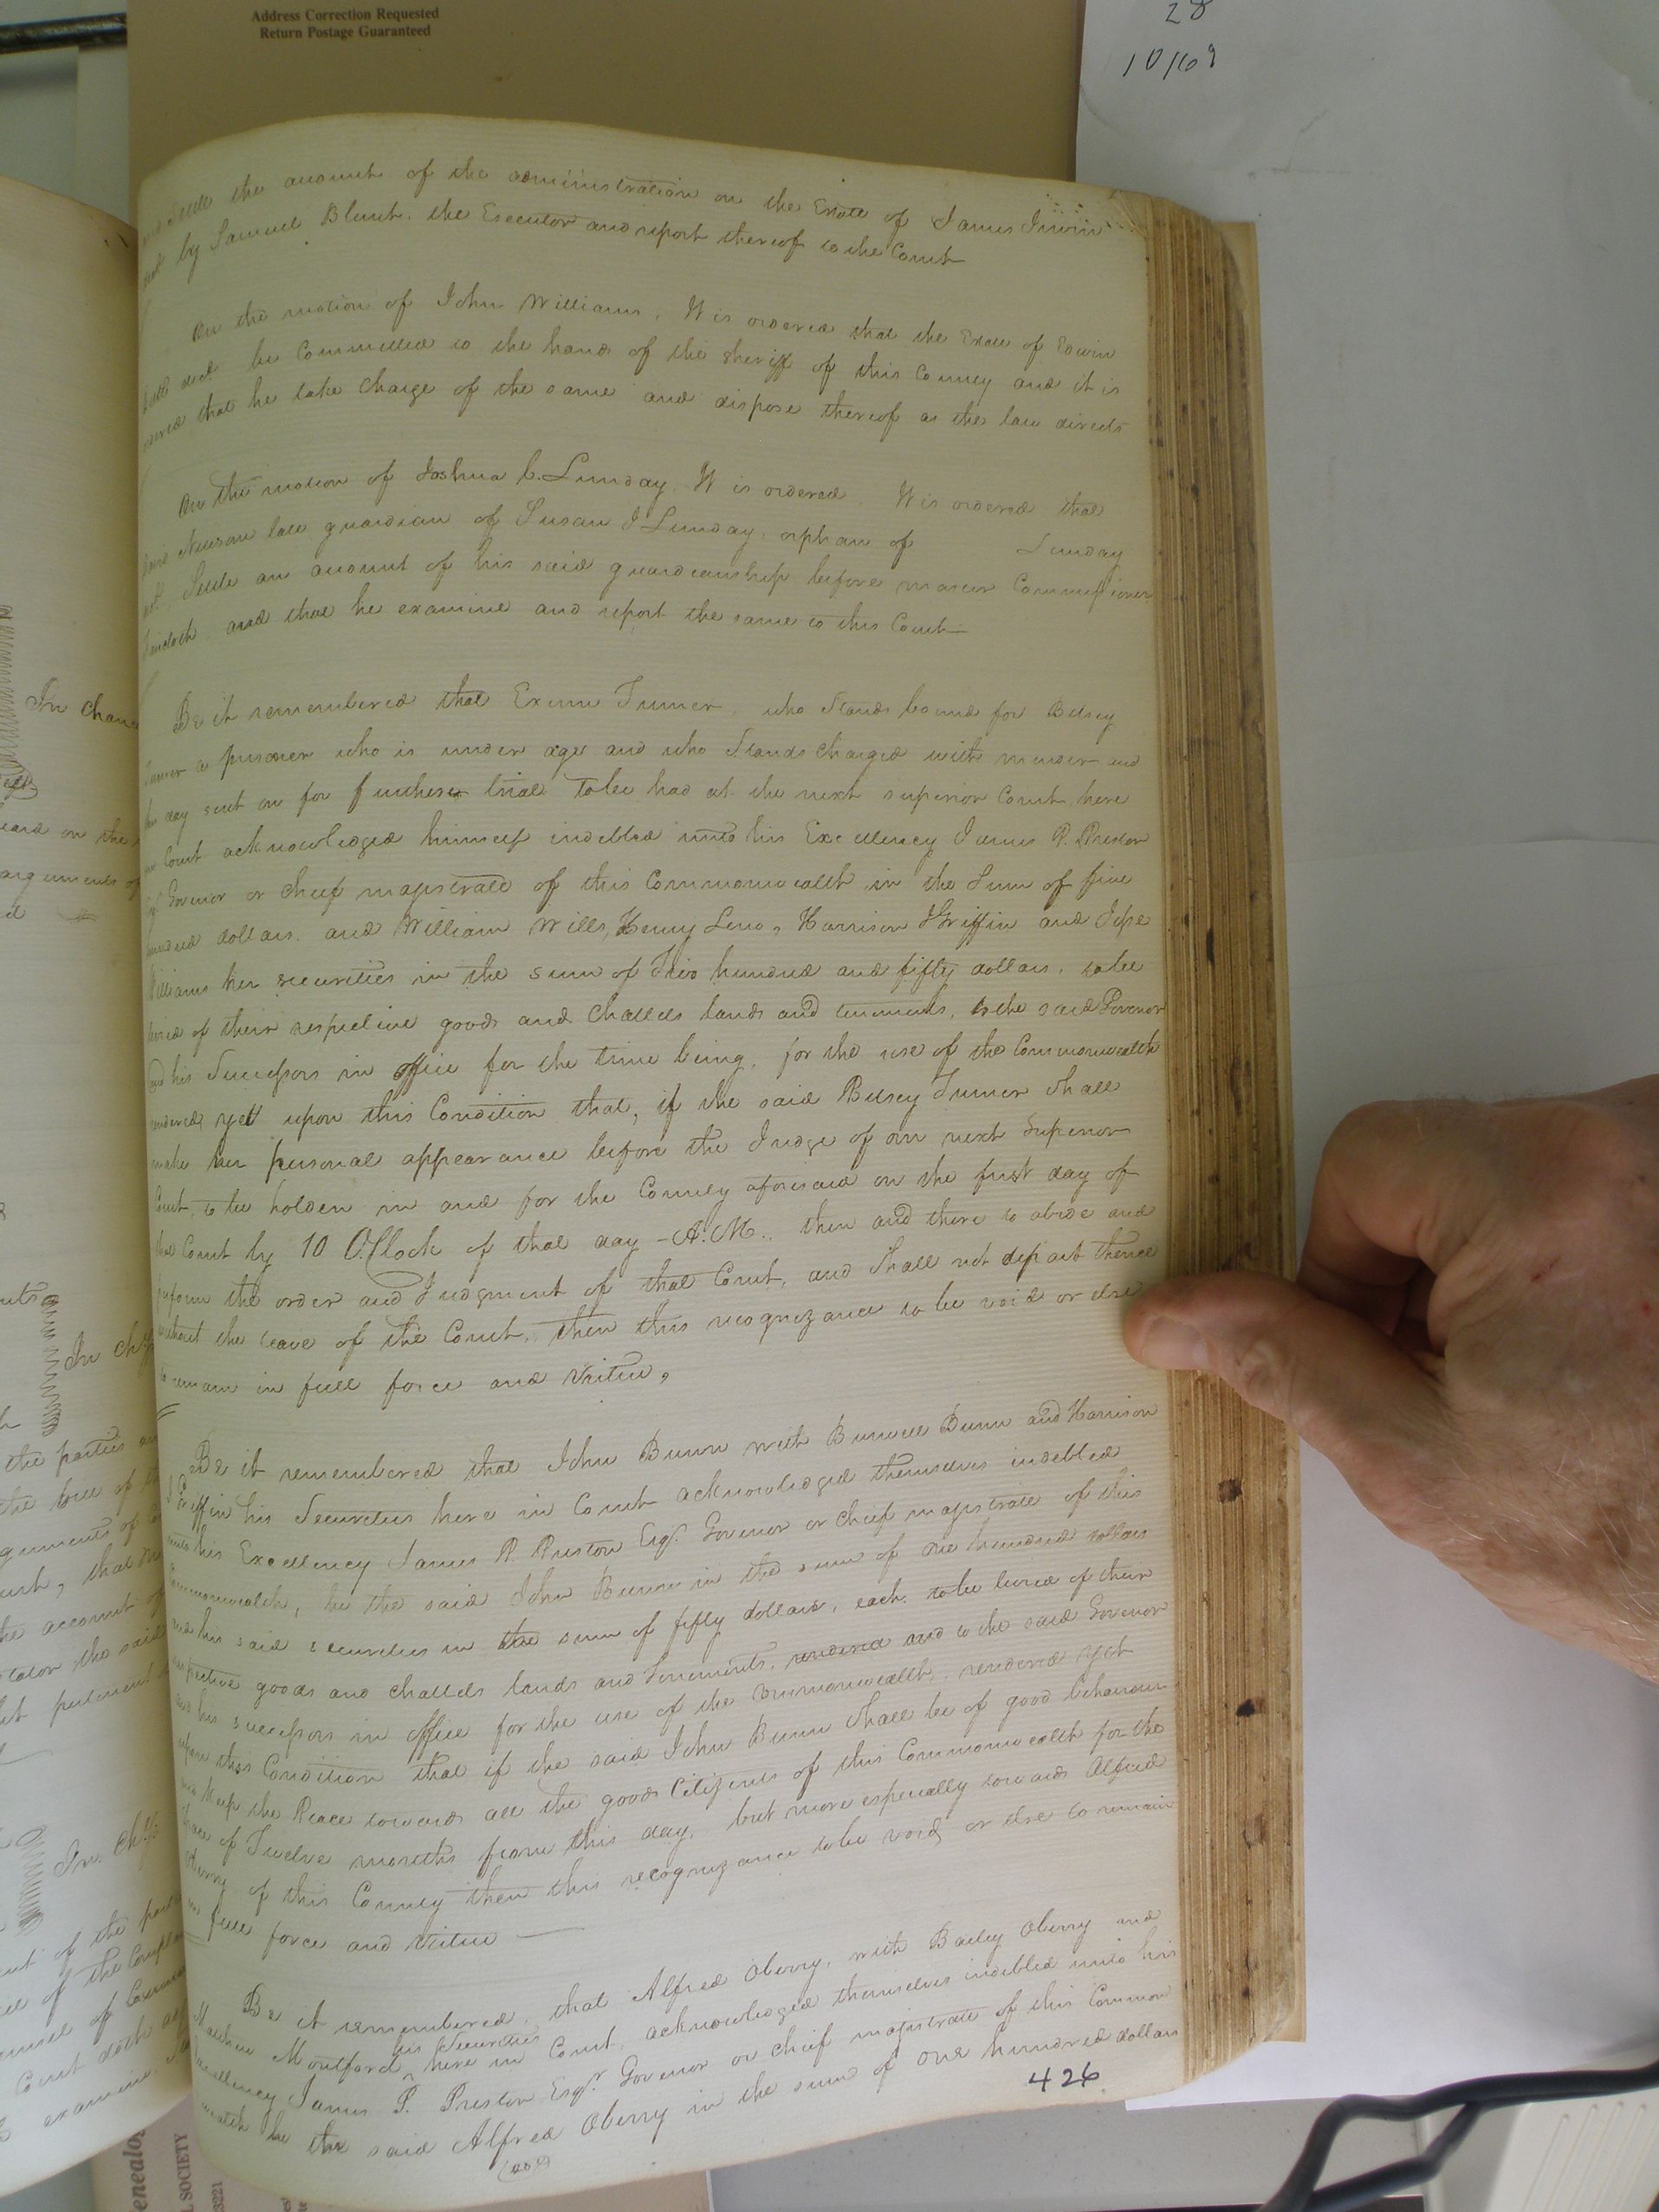 Address Correction Requested
Return Postage Guaranteed
28
10/169
and Settle the account of the administration on the Estate of James Irwin
by Samuel Blunt, the Executor and report thereof to the Court
On the motion of John Williams, It is ordered that the Estate of Edwin
decd. be Committed to the hands of the sheriff of this County and it is
that he take Charge of the same and dispose thereof as the law directs
On the motion of Joshua C. Lunday, It is ordered, It is ordered that
Newsom late guardian of Susan J Lunday, orphan of Lunday
Settle an account of his said guardianship before master Commissioner
and that he examine and report the same to this Court
Be it remembered that Exum Turner, who Stands bound for Betsey
Turner a prisoner who is under age and who Stands charged with murder and
day sent on for further trial to be had at the next superior Court, here
Court acknowledged himself indebted unto his Excellency James P. Preston
Govenor or Chief magistrate of this Commonwealth in the Sum of five
hundred dollars, and William Wills, Henry Leno, Harrison J Griffin and Jesse
Williams her securities in the sum of Two hundred and fifty dollars, to be
levied of their respective goods and Chattels lands and tenements, to the said Govenor
and his Successors in office for the time being, for the use of the Commonwealth
rendered, yet upon this Condition that, if the said Betsey Turner Shall
make her personal appearance before the Judge of our next Superior
Court, to be holden in and for the County aforesaid on the first day of
that Court by 10 O.Clock of that day - A.M., then and there to abide and
perform the order and Judgment of that Court, and Shall not depart thence
without the leave of the Court, then this recognizance to be void or else
to remain in full force and Virtue,
Be it remembered that John Bunn with Burwell Bunn and Harrison
J Griffin his Securities here in Court acknowledged themselves indebted
unto his Excellency James P. Preston Esqr. Govenor or chief magistrate of this
Commonwealth, he the said John Bunn in the sum of one hundred dollars
and his said securities in the sum of fifty dollars, each, to be levied of their
respective goods and chattels lands and Tenements, rendered and to the said Govenor
and his successors in office for the use of the Commonwealth, rendered yet
upon this Condition that if the said John Bunn Shall be of good behaviour
and Keep the Peace towards all the good Citizens of this Commonwealth for the
space of Twelve months from this day, but more especially towards Alfred
Oberry of this County then this recognizance to be void, or else to remain
in full force and Virtue
Be it remembered, that Alfred Oberry, with Bailey Oberry and
Mathew Montford his Securities here in Court, acknowledged themselves indebted unto his
Excellency James P. Preston Esqr. Govenor or chief magistrate of this Common
wealth he the said Alfred Oberry in the sum of one hundred dollars
426
In Chan
In Chy
the parties
In Chy
SOCIETY